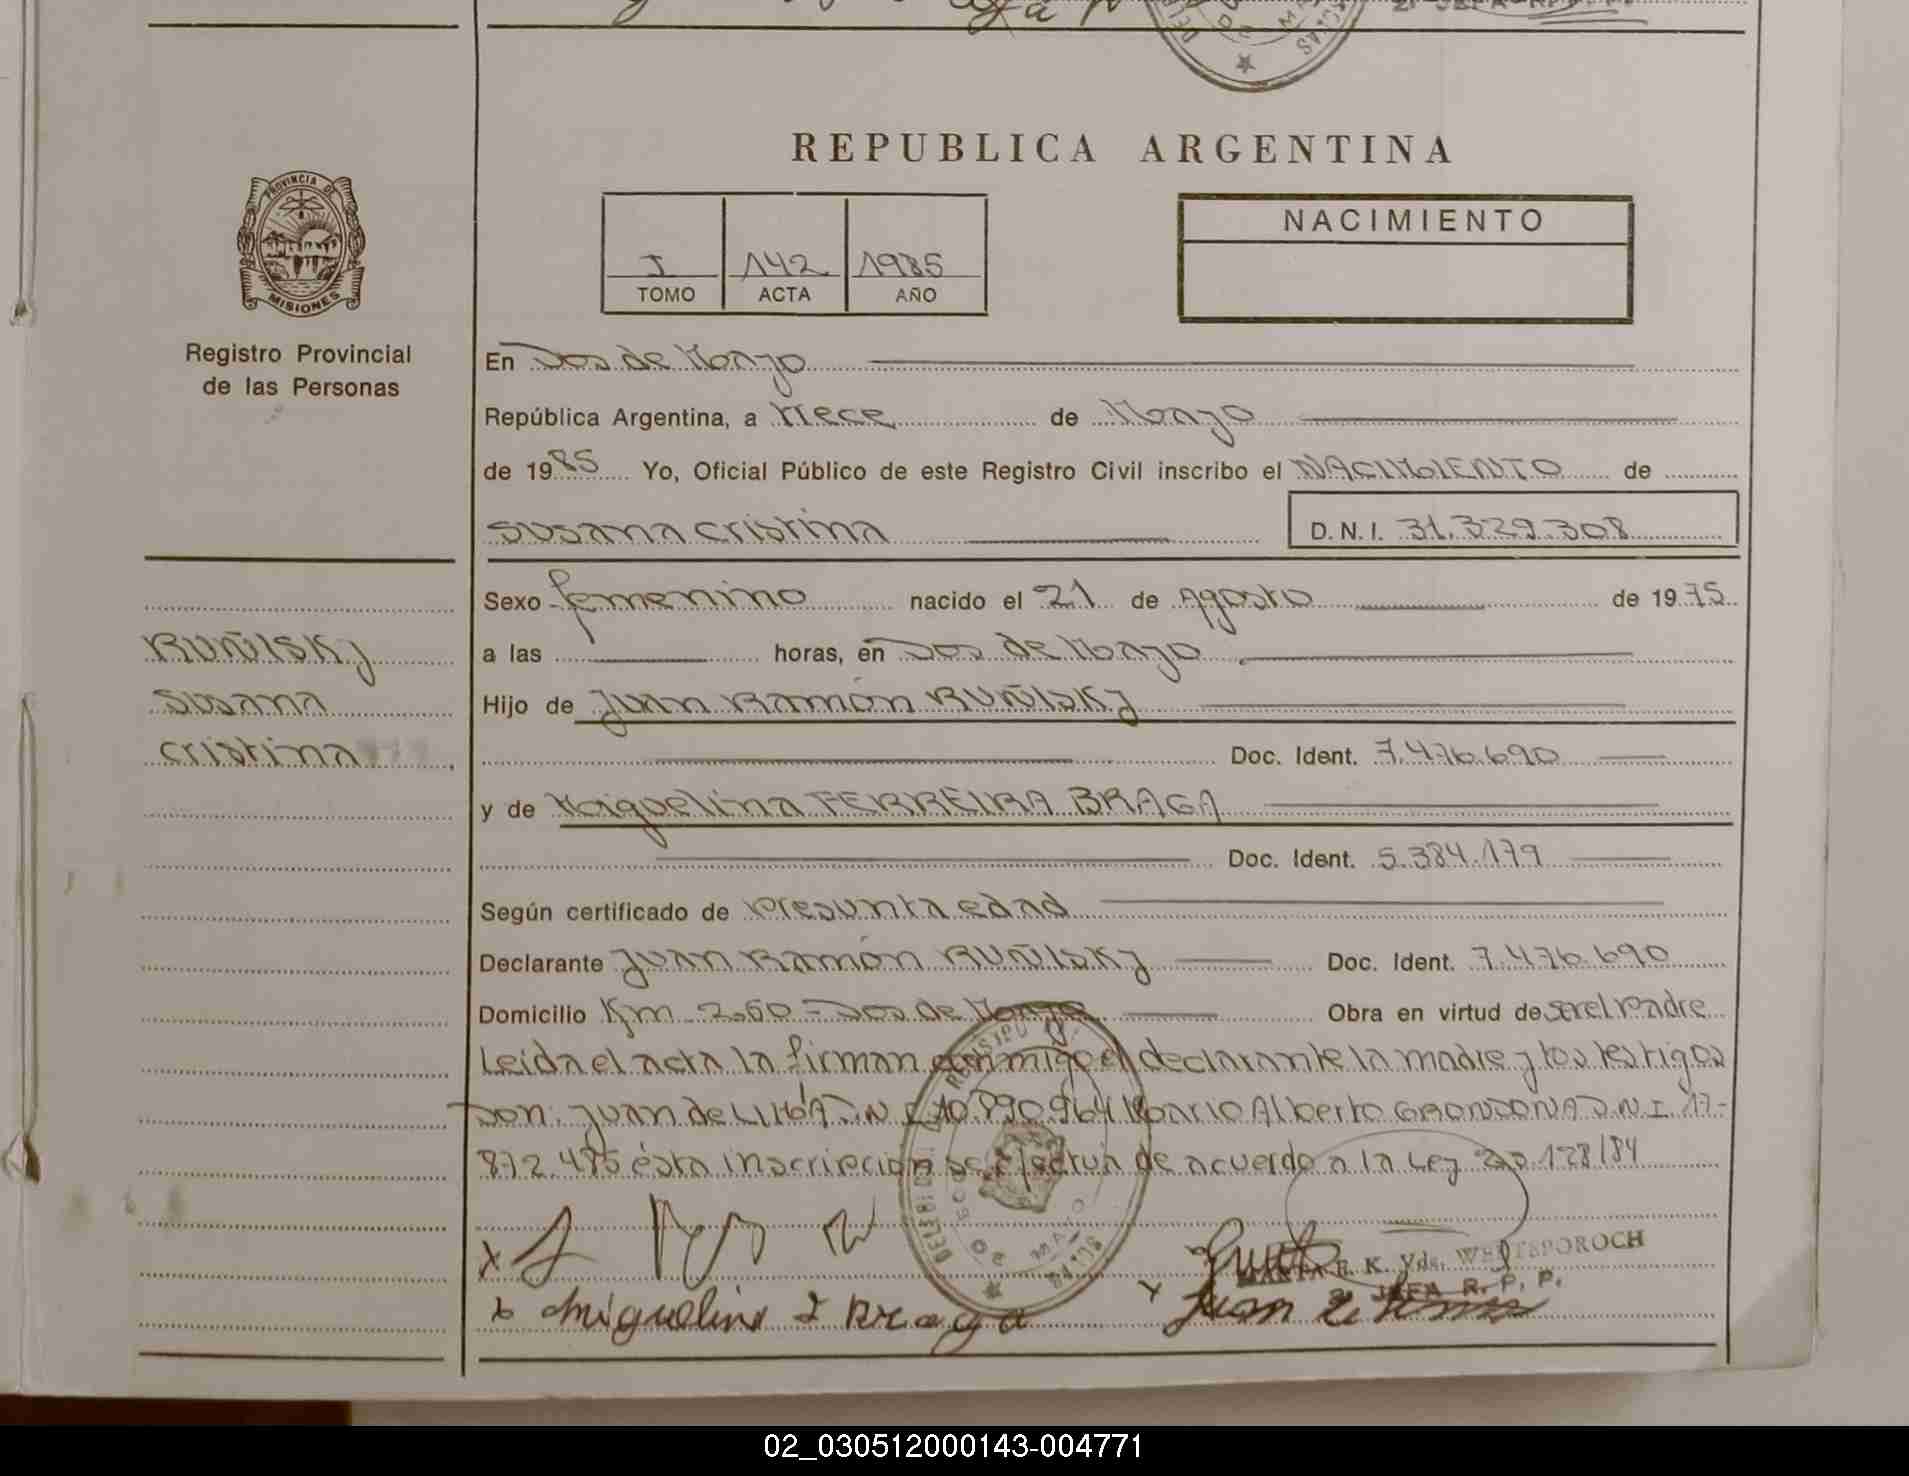 REPUBLICA ARGENTINA
PROVINCIA DE
MISIONES
Registro Provincial
de las Personas
I 142 1985
TOMO ACTA AÑO
NACIMIENTO
En Dos de Mayo
República Argentina, a trece de Mayo
de 1985 Yo, Oficial Público de este Registro Civil inscribo el NACIMIENTO de
SUSANA Cristina D.N.I. 31.329.308
Sexo femenino nacido el 21 de Agosto de 1975
a las horas, en Dos de Mayo
Hijo de Juan Ramón RUÑISKY
Doc. Ident. 7.476.690
y de Miguelina FERREIRA BRAGA
Doc. Ident. 5.384.179
Según certificado de presunta edad
Declarante Juan Ramón RUÑISKY Doc. Ident. 7.476.690
Domicilio Km 260 - Dos de Mayo Obra en virtud de ser el Padre
Leida el acta la firman conmigo el declarante la madre y los testigos
Don: Juan de LIMA D.N.I. 10.890.964 Mario Alberto GRONDONA D.N.I. 17-
872.485 ésta inscripcion se efectua de acuerdo a la Ley 128/84
RUÑISKY
SUSANA
Cristina
K. Vda.
JEFA R. P. P.
x Miguelina F Braga
Juan de Lima
02_030512000143-004771